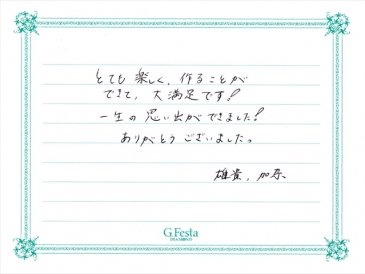 とても楽しく、作ることが
できて、大満足です!
一生の思い出ができました!
ありがとうございました。
雄貴、加奈
G.Festa
DIAMOND